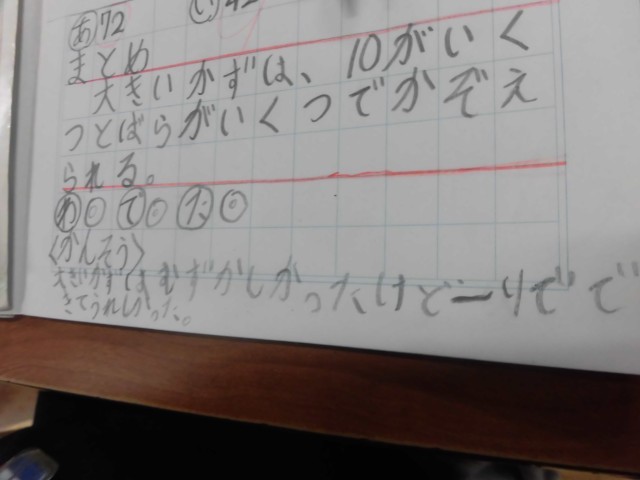 あ72 い42
まとめ
大きいかずは、10がいく
つとばらがいくつでかぞえ
られる。
わ◎ て◎ た◎
〈かんそう〉
大きかずはむずかしかったけど一りでで
きてうれしかった。